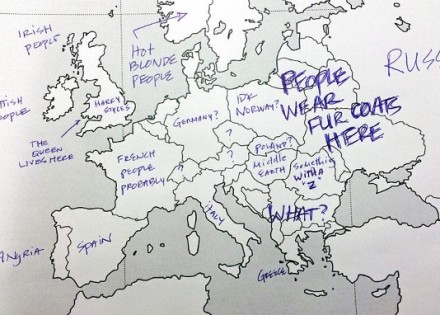 IRISH
PEOPLE
HOT
BLONDE
PEOPLE
RUSS
TISH
PEOPLE
HARRY
STYLES
THE
QUEEN
LIVES HERE
GERMANY?
IDK
NORWAY?
PEOPLE
WEAR
FUR COATS
HERE
?
?
?
FRENCH
PEOPLE
PROBABLY
POLAND?
MIDDLE
EARTH
SOMETHING
WITH A
Z
WHAT?
ITALY
SPAIN
ANGRIA
GREECE